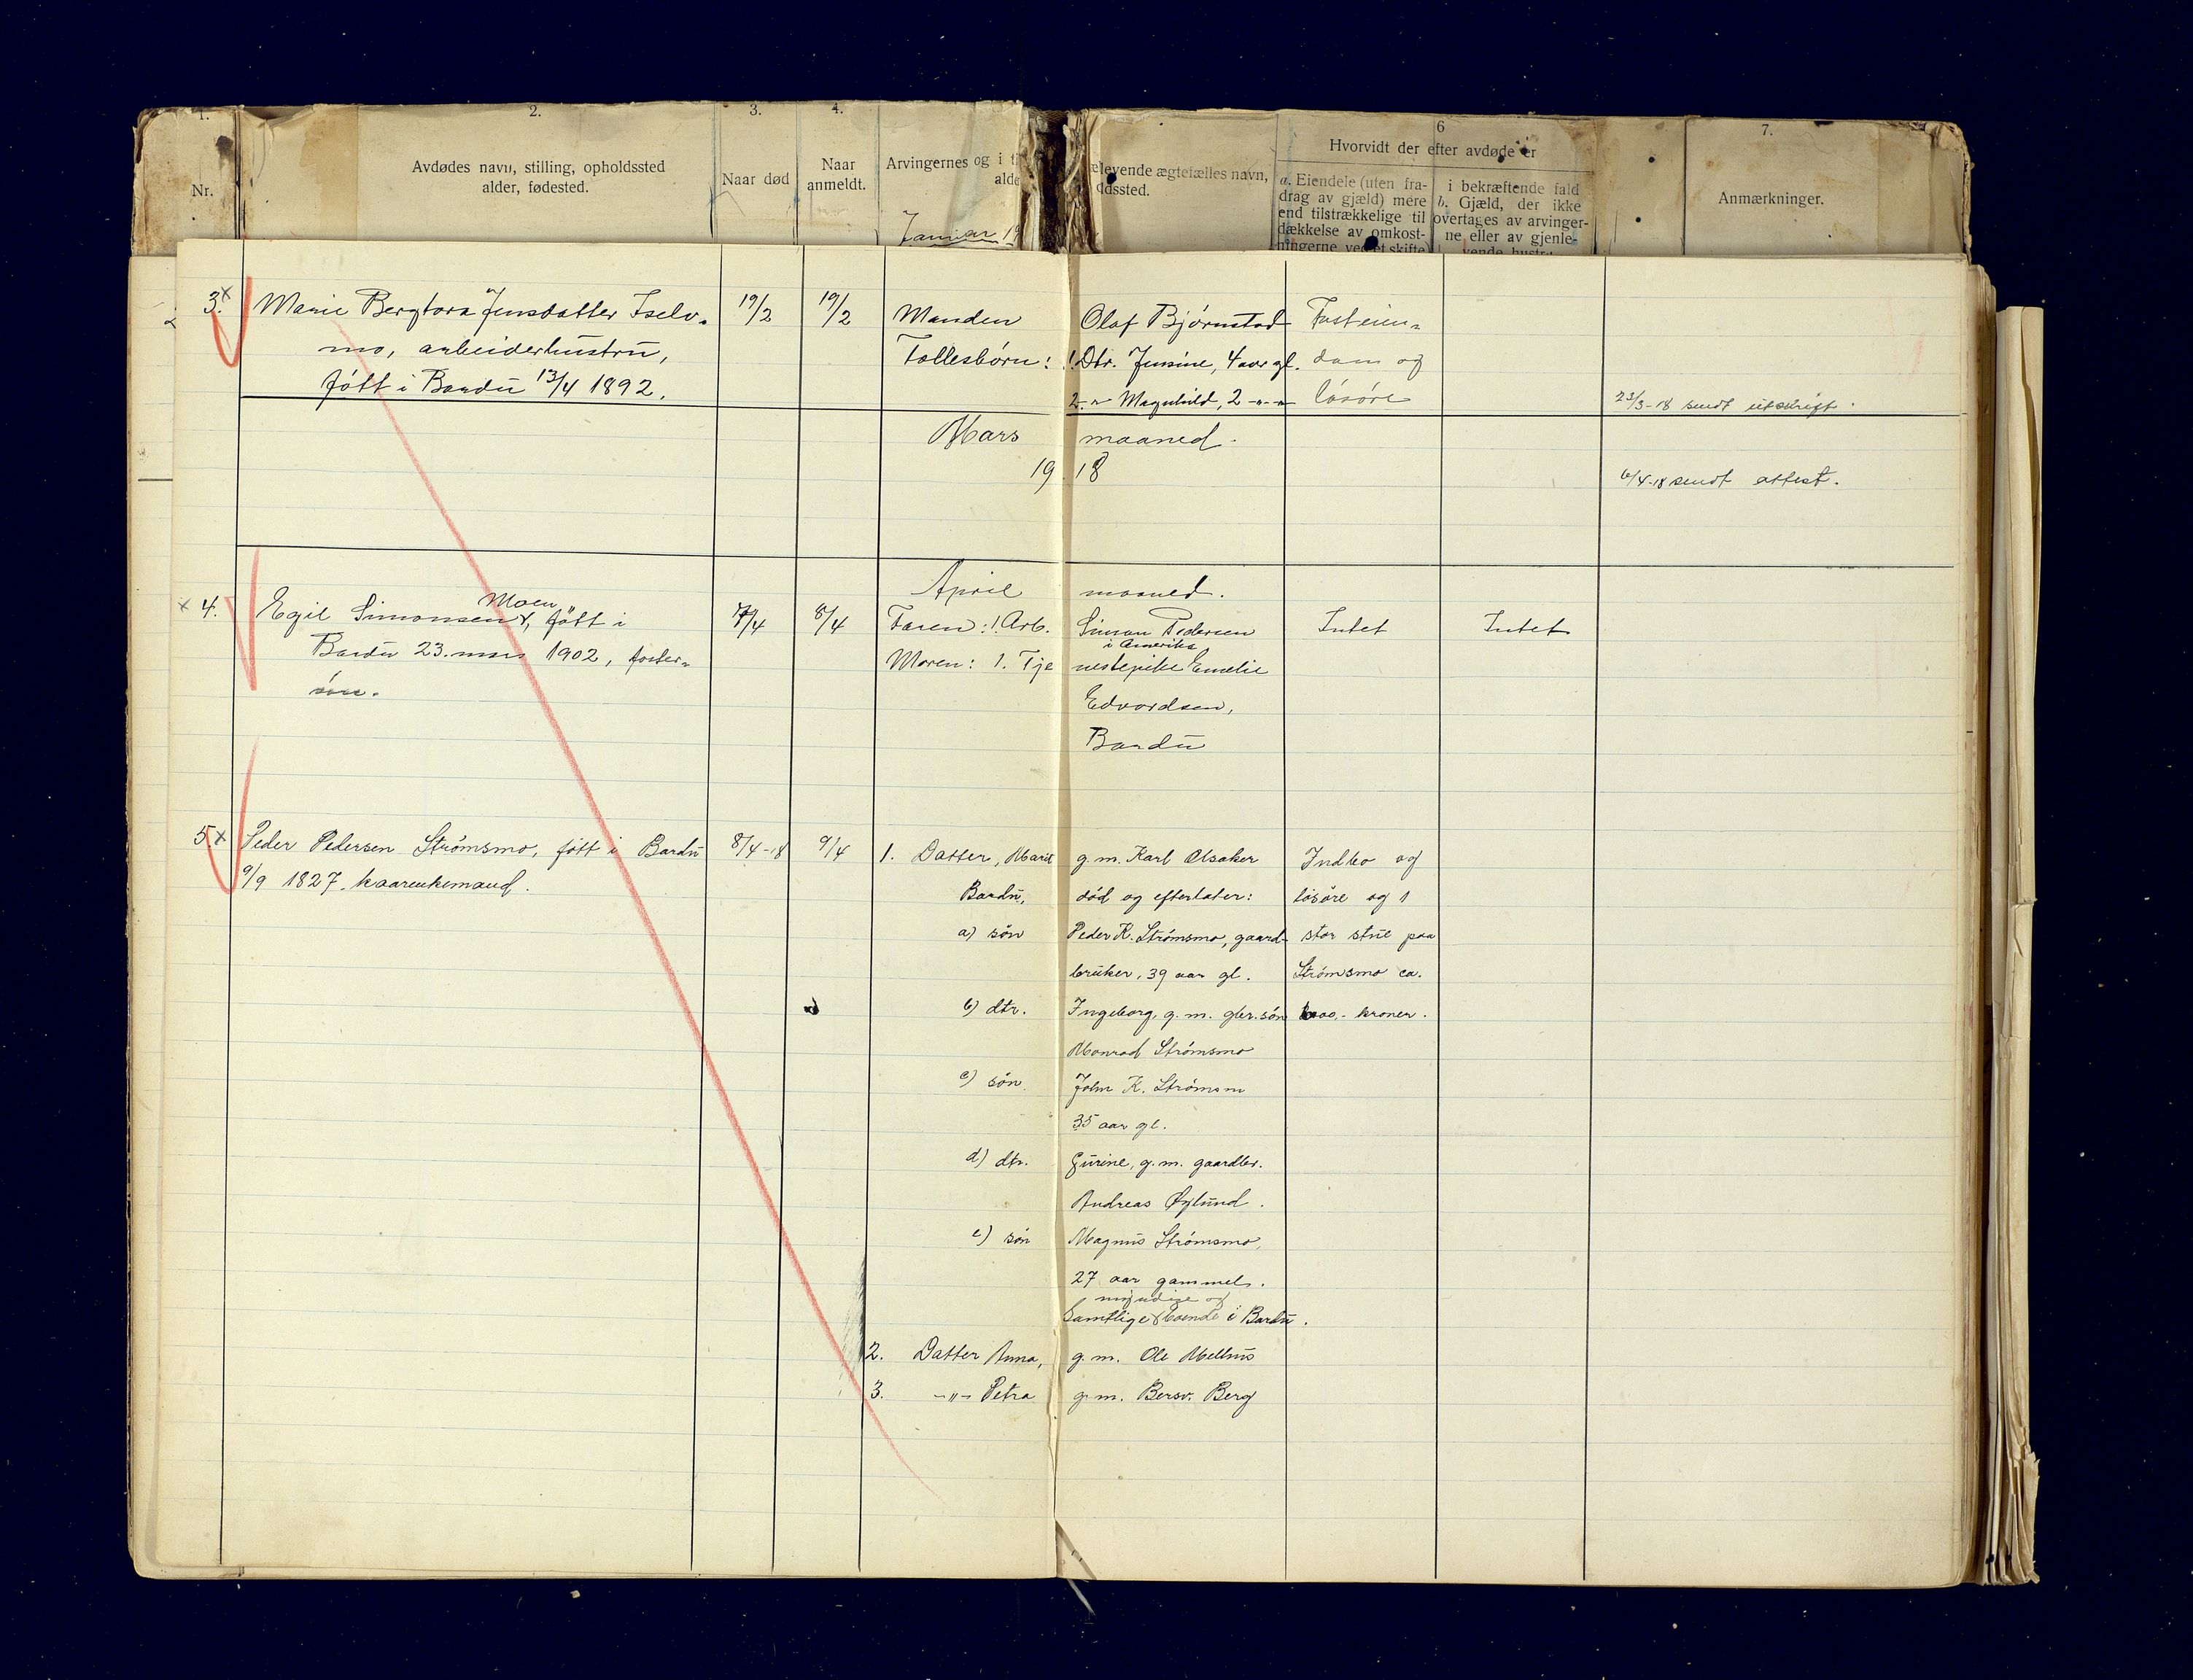 1. 2. 3. 4. 6 7.
Nr.
Avdødes navn, stilling, opholdssted
alder, fødested.
Naar død
Naar
anmeldt.
Arvingernes og i
alde
elevende ægtefælles navn,
dssted.
Hvorvidt der efter avdøde er
a. Eiendele (uten fra-
drag av gjæld) mere
end tilstrækkelige til
dækkelse av omkost-
ningerne ved et skifte
i bekræftende fald
b. Gjæld, der ikke
overtages av arvinger-
ne eller av gjenle-
Anmærkninger.
Januar 19
3. Marie Bergtora Jensdatter Iselv-
mo, arbeiderhustru,
fött i Bardu 13/4 1892.
19/2 19/2
Manden Olaf Björnstad
Fællesbörn: 1. Dtr. Jensine, 4 aar gl.
2. -"- Magnhild, 2 -"-"-
Fasteien-
dom og
lösöre
23/3-18 sendt utskrift.
Mars maaned.
1918
6/4-18 sendt attest.
April maaned.
x 4. Egil Simonsen Moen, fött i
Bardu 23. mars 1902, foster-
sön.
7/4 8/4
Faren: 1. Arb. Simon Pedersen
i Amerika
Moren: 1. Tjenestepike Emelie
Edvardsen,
Bardu
Intet Intet
5. x Peder Pedersen Strömsmo, fött i Bardu
9/9 1827. kaarenkemand.
8/4-18 9/4
1. Datter, Marit g.m. Karl Olsaker
Bardu, död og efterlater:
a) sön Peder K. Strömsmo, gaard-
bruker, 39 aar gl.
b) dtr. Ingeborg, g.m. gbr. sön
Monrad Strömsmo
c) sön John K. Strömsm
35 aar gl.
d) dtr. Gurine, g.m. gaardbr.
Andreas Øglund.
e) sön Magnus Strömsmo,
27 aar gammel.
myndige og
Samtlige boende i Bardu.
2. Datter Anna, g.m. Ole Melhus
3. -"- Petra g.m. Bersv. Berg
Indbo og
lösöre og 1
stor stue paa
Strömsmo ca.
kroner.